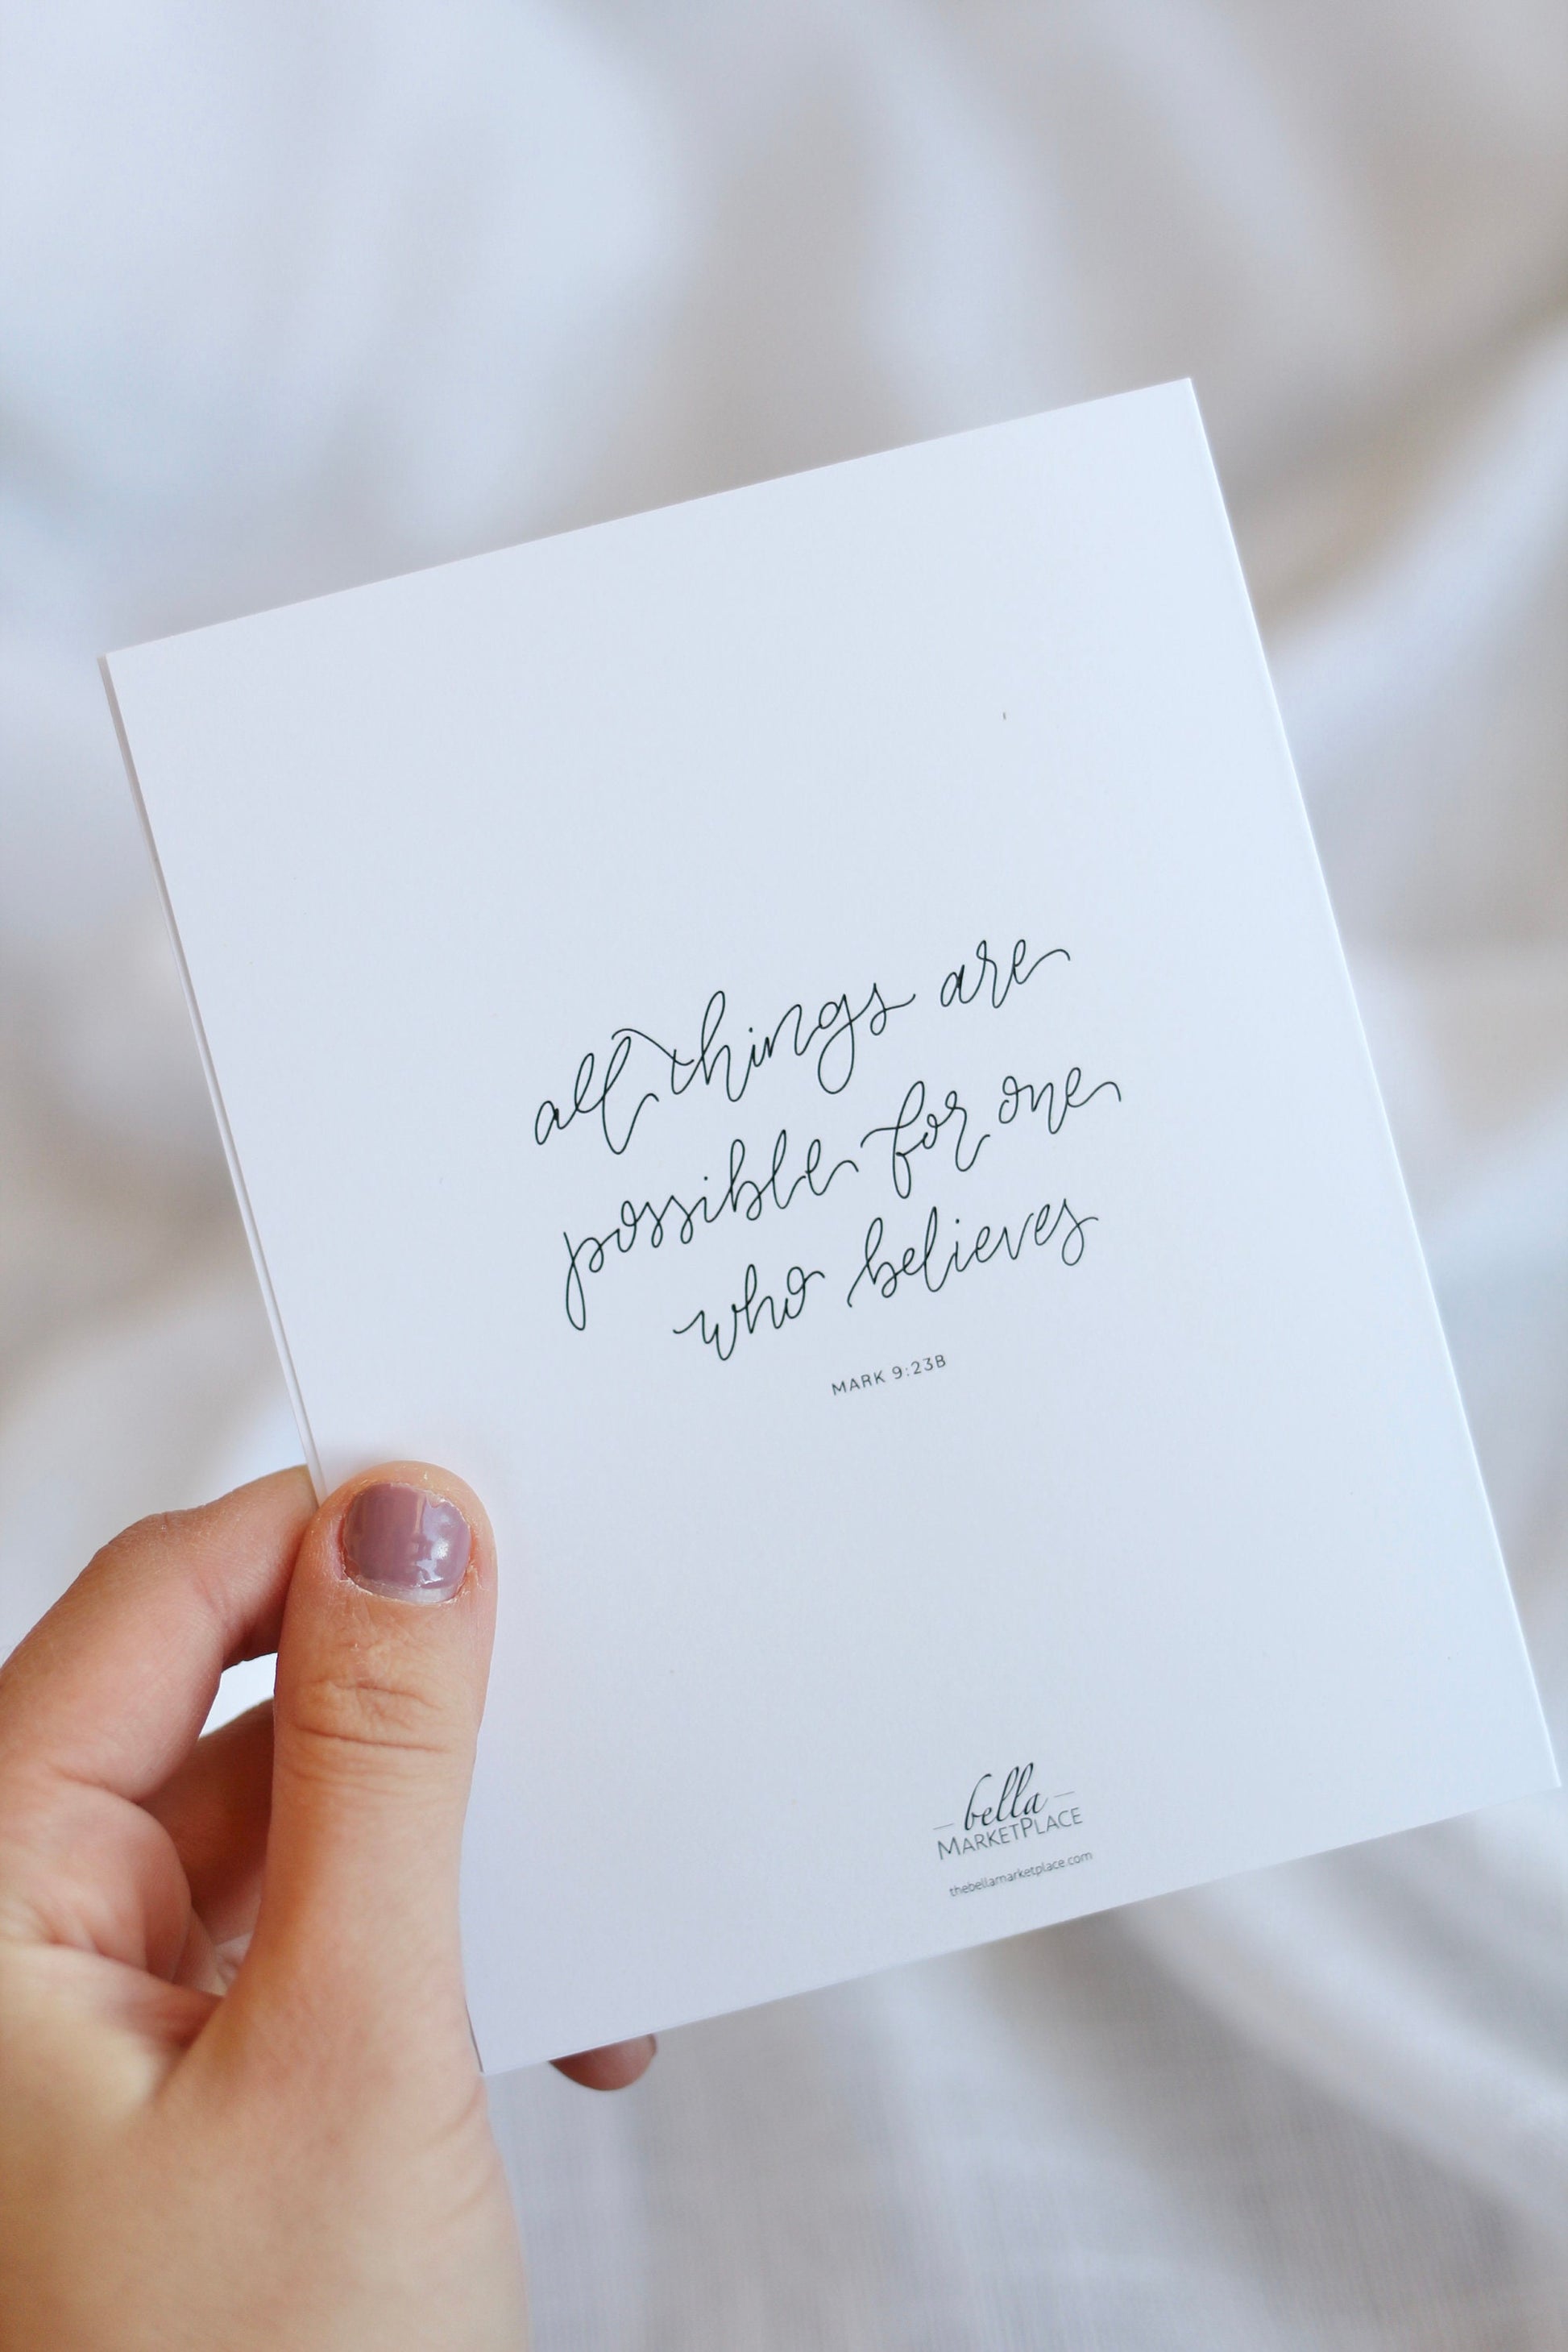 all things are
possible for one
who believes
MARK 9:23B
bella
MARKETPLACE
thebellamarketplace.com